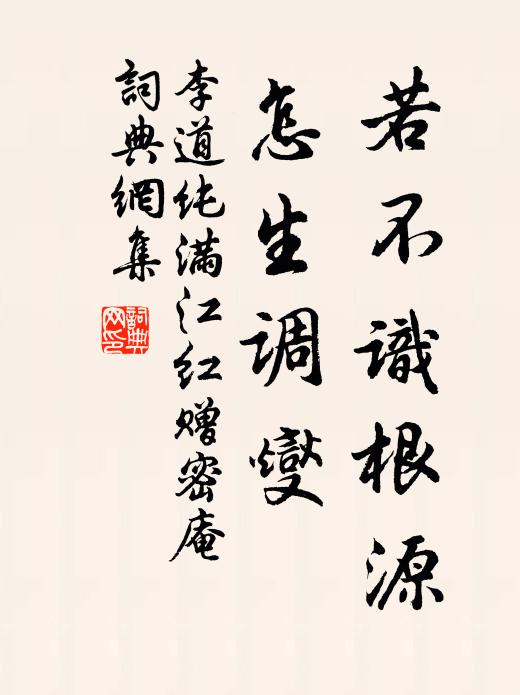 若不識根源
怎生調燮
李道纯滿江红赠密庵
詞典網集
詞典网印